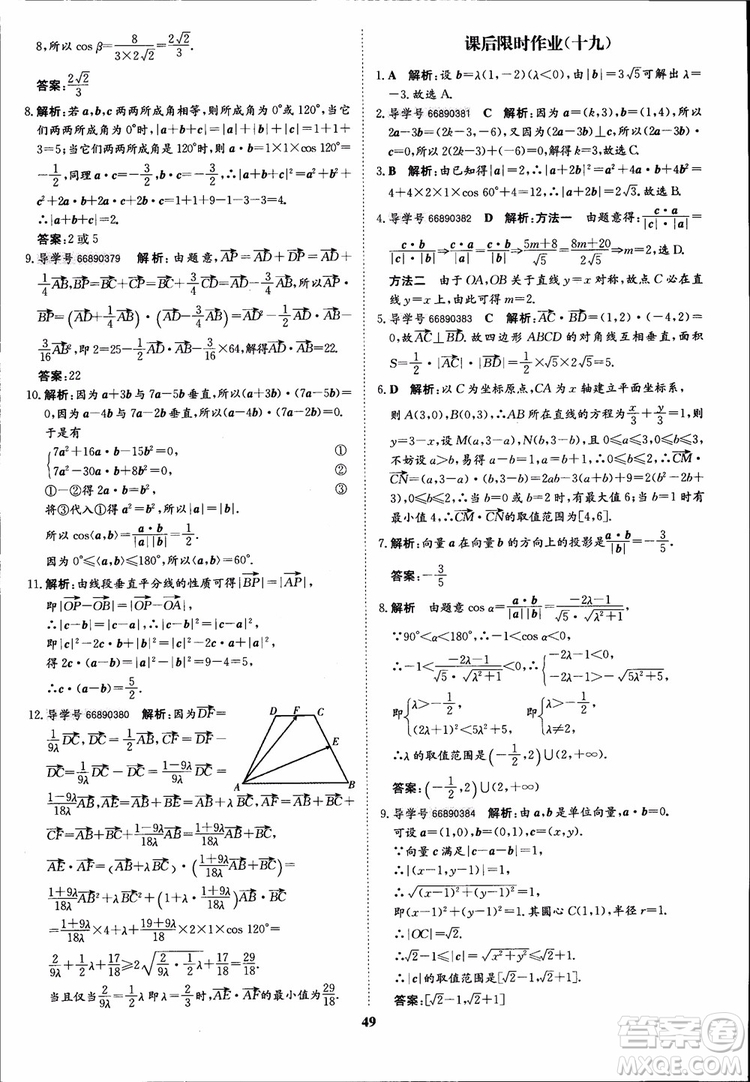 8,所以 cos β=8/(3×2√2)=2√2/3.
答案:2√2/3
8.解析:若a,b,c两两所成角相等,则所成角为0°或120°,当它
们两两所成角为0°时,所以|a+b+c|=|a|+|b|+|c|=1+1+
3=5;当它们两两所成角为120°时,所以a·b=|a||b|cos 120°=
-1/2,同理a·c=-3/2,b·c=-3/2,∴|a+b+c|²=a²+b²+
c²+2a·b+2a·c+2b·c=1+1+9-1-3-3=4.
∴|a+b+c|=2.
答案:2或5
9.导学号 66890379 解析:由题意,AP=AD+DP=AD+
1/4 AB,BP=BC+CP=BC+CD-3/4 AB=AD-3/4 AB,所以AP·
BP=(AD+1/4 AB)·(AD-3/4 AB)=AD²-1/2 AD·AB-
3/16 AB²,即2=25-1/2 AD·AB-3/16×64,解得AD·AB=22.
答案:22
10.解析:因为a+3b与7a-5b垂直,所以(a+3b)·(7a-5b)=
0,因为a-4b与7a-2b垂直,所以(a-4b)·(7a-2b)=0.
于是有
{7a²+16a·b-15b²=0, ①
7a²-30a·b+8b²=0, ②
①-②得2a·b=b². ③
将③代入①得|a|=|b|.
所以cos⟨a,b⟩=a·b/(|a||b|)=1/2.
因为0°≤⟨a,b⟩≤180°,所以⟨a,b⟩=60°.
11.解析:由线段垂直平分线的性质可得|BP|=|AP|,
即|OP-OB|=|OP-OA|,
∴|c-b|=|c-a|,∴|c-b|²=|c-a|²,
即|c|²-2c·b+|b|²=|c|²-2c·a+|a|²,
得2c·(a-b)=|a|²-|b|²=9-4=5,
∴c·(a-b)=5/2.
12.导学号 66890380 解析:因为DF=
1/9λ DC,DC=1/2 AB,CF=DF-DC=
1/9λ DC-DC=(1-9λ)/9λ DC=
(1-9λ)/18λ AB,AE=AB+BE=AB+λBC,AF=AB+BC+
CF=AB+BC+(1-9λ)/18λ AB=(1+9λ)/18λ AB+BC,
AE·AF=(AB+λBC)·((1+9λ)/18λ AB+BC)=
(1+9λ)/18λ AB²+λBC²+(1+λ·(1+9λ)/18λ)AB·BC
=(1+9λ)/18λ×4+λ+(19+9λ)/18×2×1×cos 120°=
2/9λ+1/2 λ+17/18≥2√(2/9λ·1/2 λ)+17/18=29/18,
当且仅当2/9λ=1/2 λ即λ=2/3时,AE·AF的最小值为29/18.
D F C
E
A B
课后限时作业(十九)
1.A 解析:设b=λ(1,-2)(λ<0),由|b|=3√5可解出λ=
-3.故选A.
2.导学号 66890381 C 解析:因为a=(k,3),b=(1,4),所以
2a-3b=(2k-3,-6).因为(2a-3b)⊥c,所以(2a-3b)·c=
(2k-3,-6)·(2,1)=2(2k-3)-6=0,解得k=3.故选C.
3.B 解析:由已知得|a|=2,∴|a+2b|²=a²+4a·b+4b²=
4+4×2×1×cos 60°+4=12,∴|a+2b|=2√3.故选B.
4.导学号 66890382 D 解析:方法一 由题意得:c·a/(|c|·|a|)
=c·b/(|c|·|b|)⇒c·b/|b|=c·a/|a|⇒(5m+8)/√5=(8m+20)/(2√5)⇒m=2.故选D.
方法二 由于OA,OB关于直线y=x对称,故点C必在直
线y=x上,由此可得m=2.
5.导学号 66890383 C 解析:AC·BD=(1,2)·(-4,2)=
0.故AC⊥BD.故四边形ABCD的对角线互相垂直,面积
S=1/2·|AC|·|BD|=1/2×√5×2√5=5.故选C.
6.D 解析:以C为坐标原点,CA为x轴建立平面直角坐标系,
则A(3,0),B(0,3),所以AB所在直线的方程为x/3+y/3=1,则
y=3-x.设M(a,3-a),N(b,3-b),且0≤a≤3,0≤b≤3,
不妨设a>b,因为MN=√2,所以a-b=1,所以a=b+1,所以CM·
CN=(a,3-a)·(b,3-b)=2ab-3(a+b)+9=2(b²-2b+3),
0≤b≤2,∴当b=0或b=2时,有最大值6;当b=1时,有
最小值4.∴CM·CN的取值范围为[4,6].
7.解析:向量a在向量b的方向上的投影是a·b/|b|=-3/5.
答案:-3/5
8.解析 由题意cos α=a·b/(|a||b|)=(-2λ-1)/(√5·√(λ²+1)),
∵90°<α<180°,∴-1<cos α<0.
∴-1<(-2λ-1)/(√5·√(λ²+1))<0.∴{-2λ-1<0,
-2λ-1>-√(5λ²+5),
即{λ>-1/2,
(2λ+1)²<5λ²+5, 即{λ>-1/2,
λ≠2.
∴λ的取值范围是(-1/2,2)∪(2,+∞).
答案:(-1/2,2)∪(2,+∞)
9.导学号 66890384 解析:由a,b是单位向量,a·b=0.
可设a=(1,0),b=(0,1),c=(x,y).
∵向量c满足|c-a-b|=1,
∴|(x-1,y-1)|=1.
∴√((x-1)²+(y-1)²)=1,
即(x-1)²+(y-1)²=1.其圆心C(1,1),半径r=1.
∴|OC|=√2.
∴√2-1≤|c|=√(x²+y²)≤√2+1.
∴|c|的取值范围是[√2-1,√2+1].
答案:[√2-1,√2+1]
49
答案圈
MXQE.COM